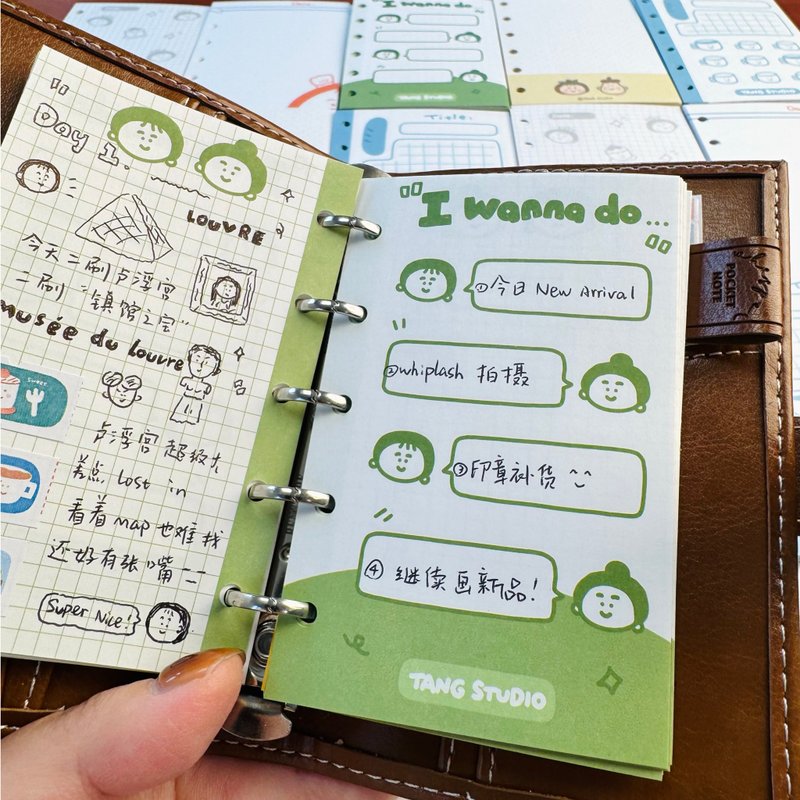 Day 1.
LOUVRE
今天二刷卢浮宫
二刷“镇馆之宝”
musée du Louvre
SWEET
卢浮宫超级大
差点 Lost in
看着 map 也难找
还好有张嘴
Super Nice!
"I wanna do..."
①今日 New Arrival
②whiplash 拍摄
③印章补货
④ 继续画新品!
TANG STUDIO
POCKET
NOTE
I wanna do...
TANG STUDIO
Title: